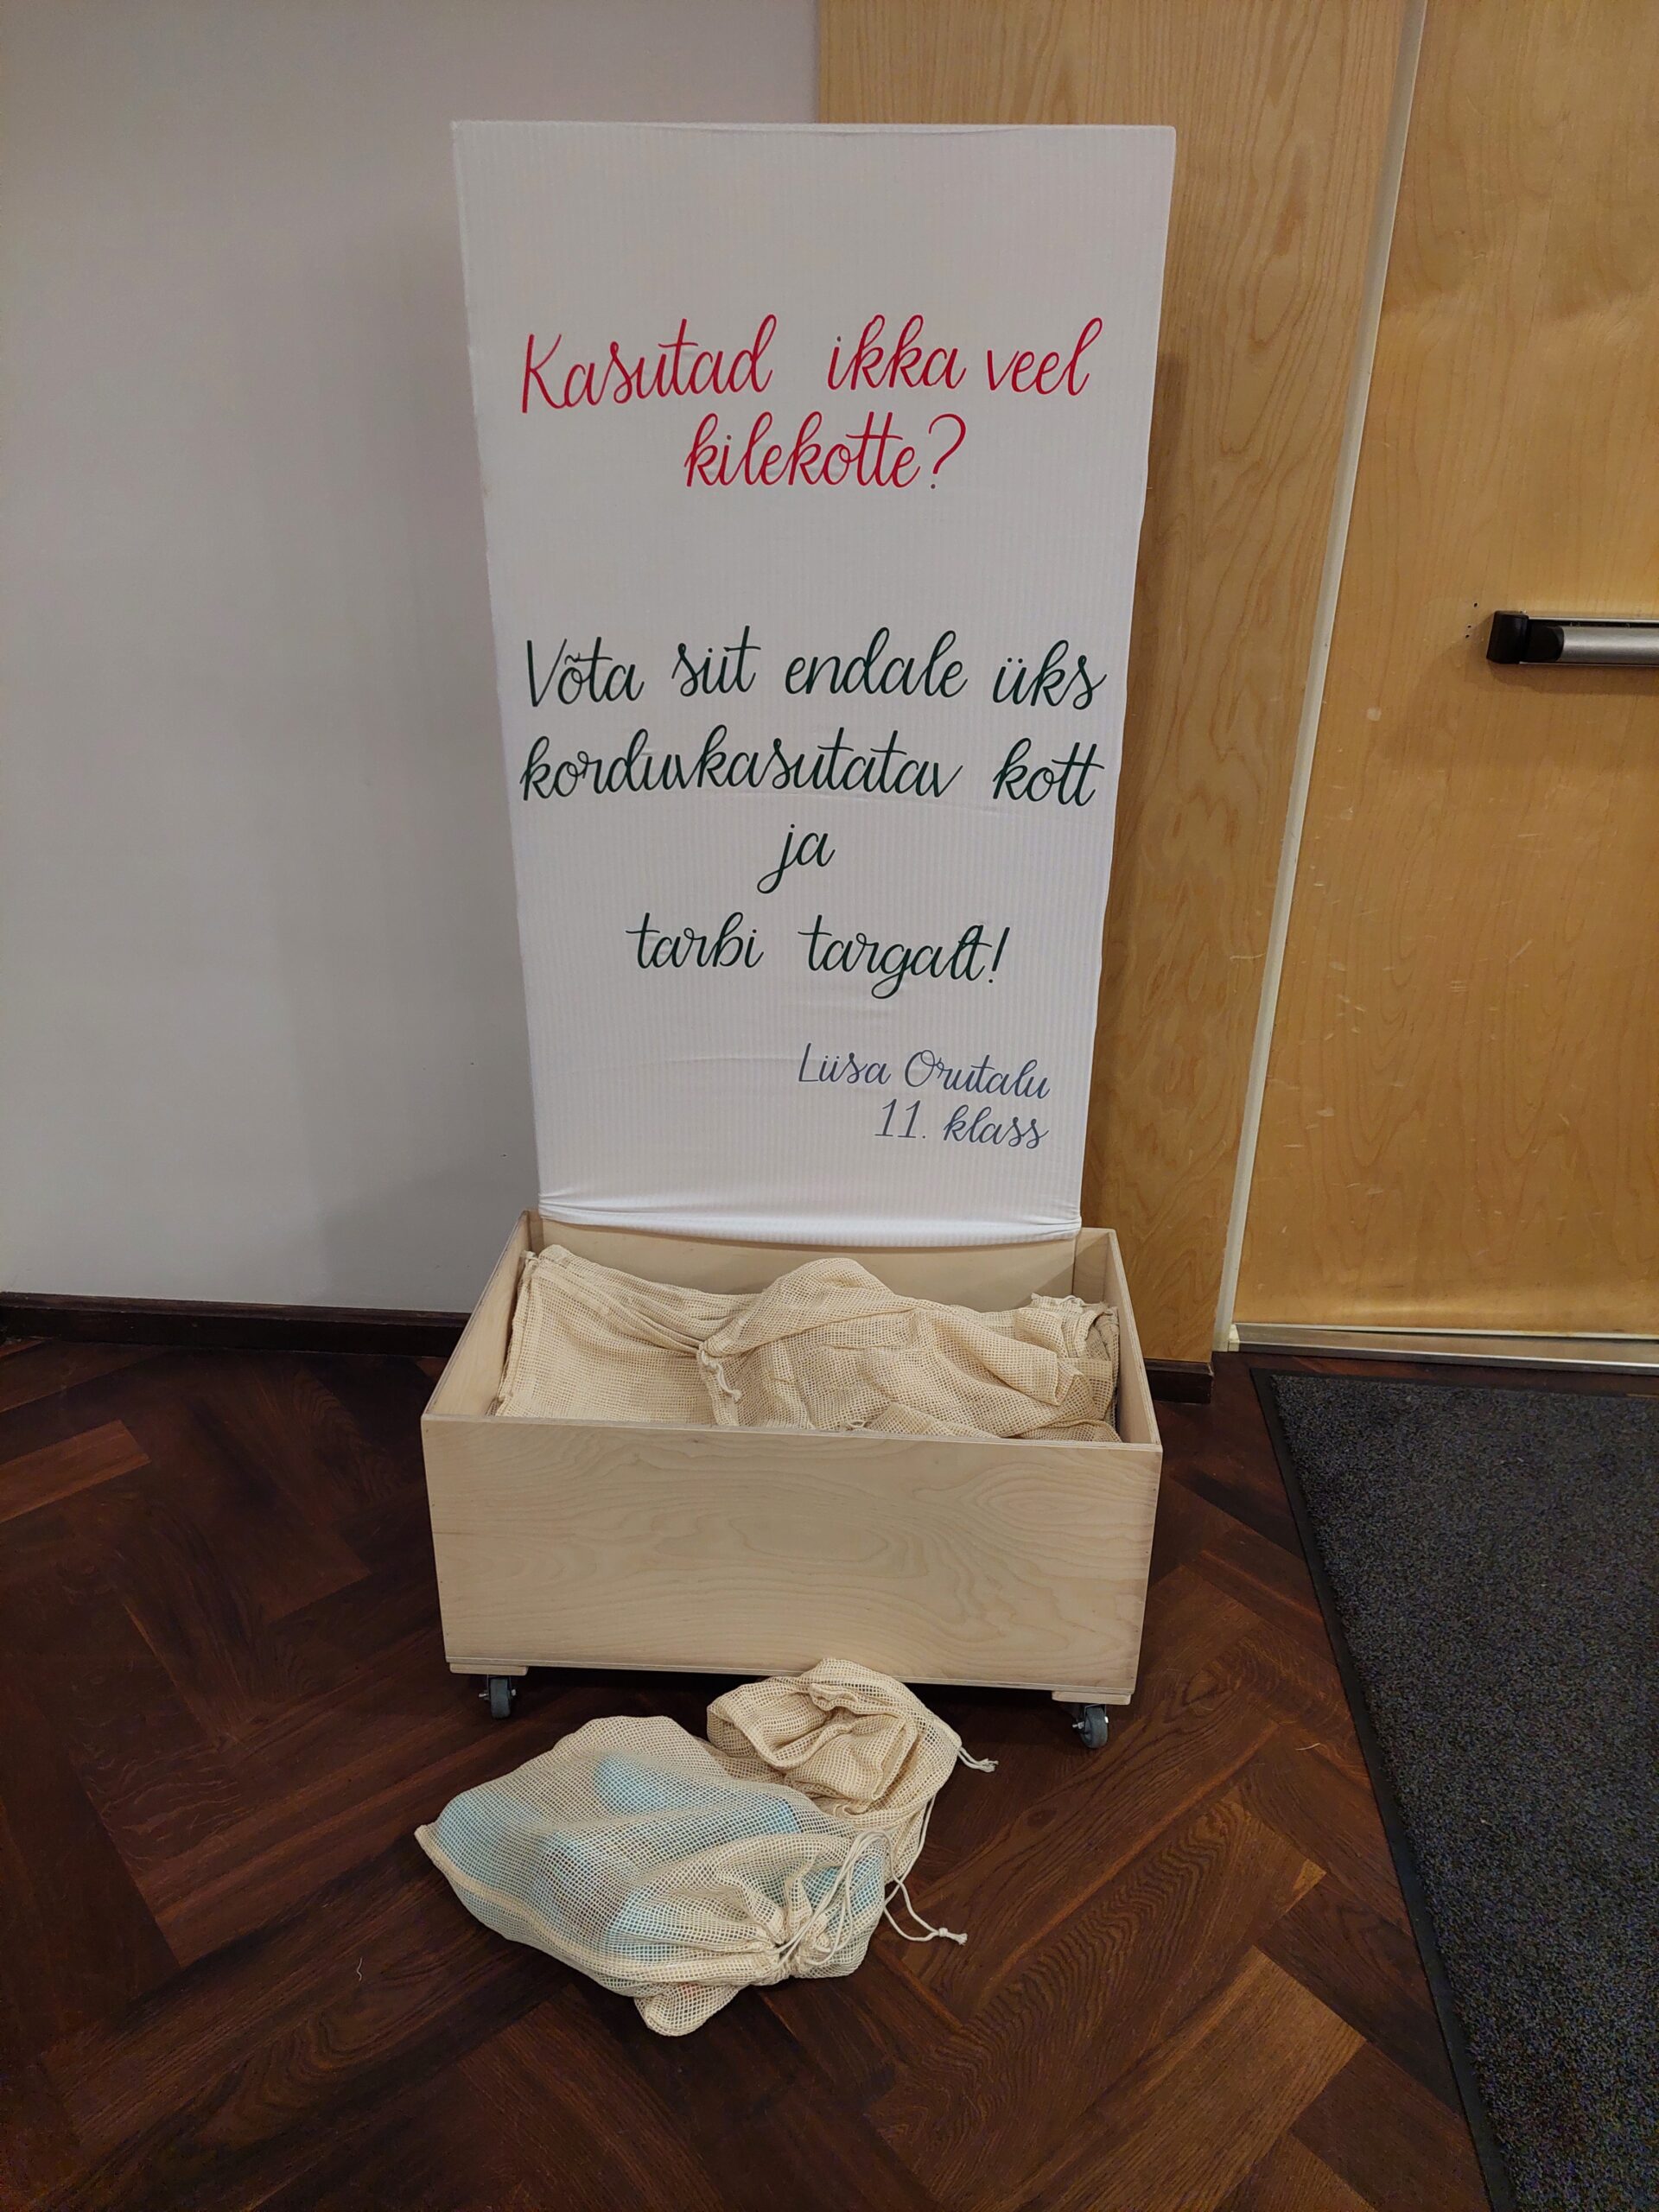 Kasutad ikka veel
kilekotte?
Võta siit endale üks
korduvkasutatav kott
ja
tarbi targalt!
Liisa Orutalu
11. klass